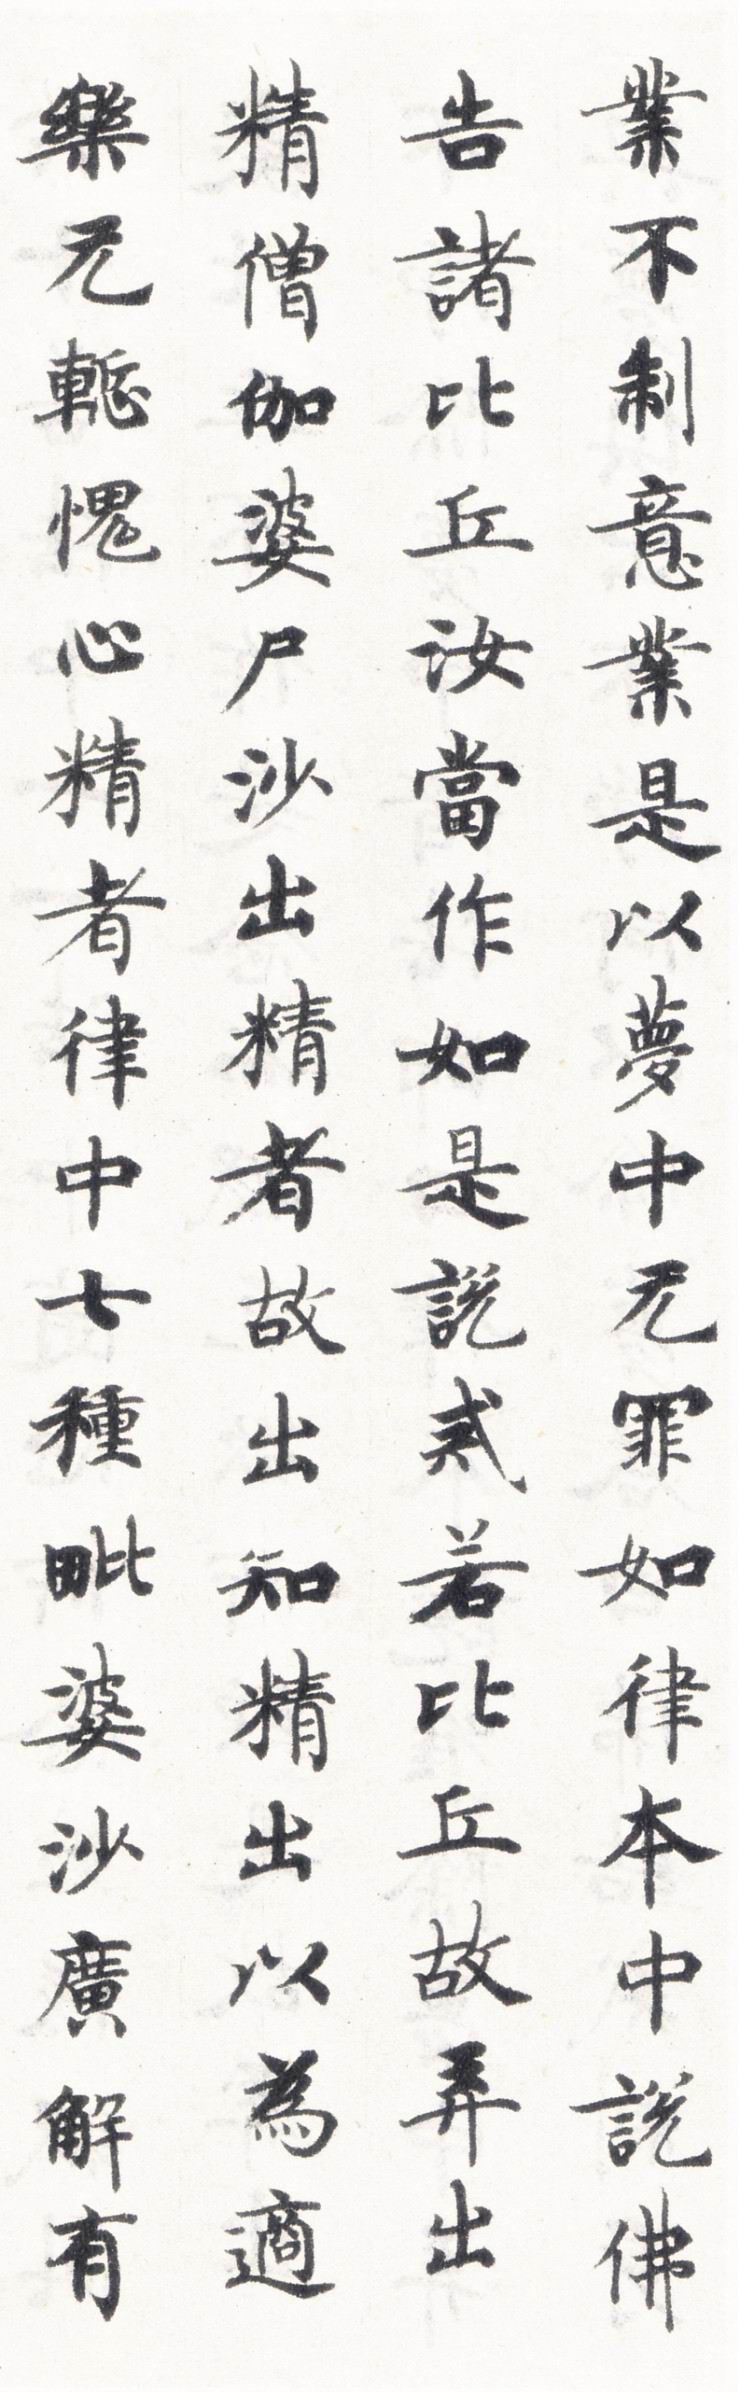 業不制意業是以夢中无罪如律本中說佛
告諸比丘汝當作如是說戒若比丘故弄出
精僧伽婆尸沙出精者故出知精出以為適
樂无慙愧心精者律中七種毗婆沙廣解有